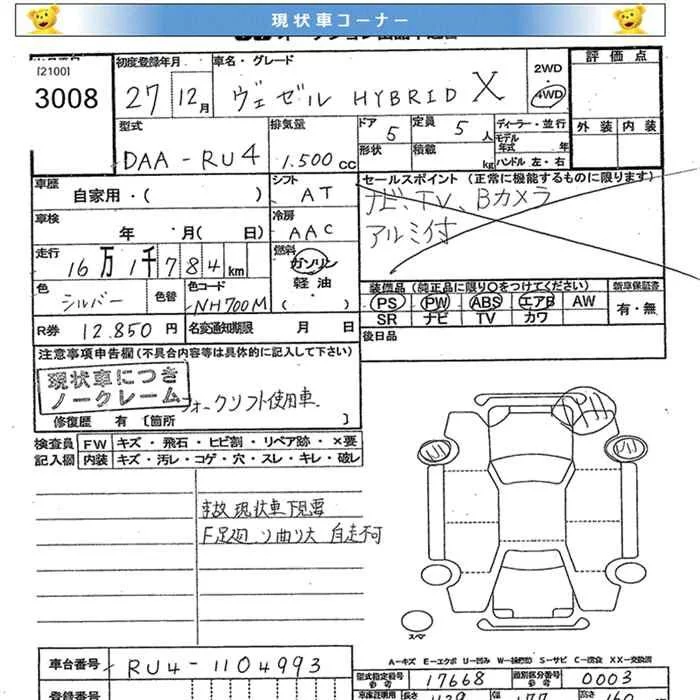 現状車コーナー
[2100]
3008
初度登録年月
27 12月
車名・グレード
ヴェゼル HYBRID X
2WD
・
4WD
評価点
外装 内装
型式
DAA-RU4
排気量
1.500 cc
ドア 5
定員 5人
形状
積載 kg
ディーラー・並行
モデル年式 年
ハンドル 左・右
車歴
自家用・( )
シフト AT
車検
年 月( 日)
冷房 AAC
走行
16万1千784km
燃料
ガソリン
軽油
( ・ )
セールスポイント (正常に機能するものに限ります)
ナビ、TV、Bカメラ
アルミ付
色
シルバー
色替
色コード
NH700M
装備品 (純正品に限り○をつけてください)
PS PW ABS エアB AW
SR ナビ TV カワ
新車保証書
有・無
R券 12.850 円
名変通知期限 月 日
後日品
注意事項申告欄(不具合内容等は具体的に記入して下さい)
現状車につき
ノークレーム
フォークリフト使用車
修復歴 有 〔箇所 〕
検査員
記入欄
FW キズ・飛石・ヒビ割・リペア跡・×要
内装 キズ・汚レ・コゲ・穴・スレ・キレ・破レ
事故現状車下見要
F足廻り曲り大 自走不可
スペア
A-キズ E-エクボ U-凹み W-補修跡 S-サビ C-腐食 XX-交換済
車台番号 RU4-1104993
型式指定番号 17668
類別区分番号 0003
登録番号